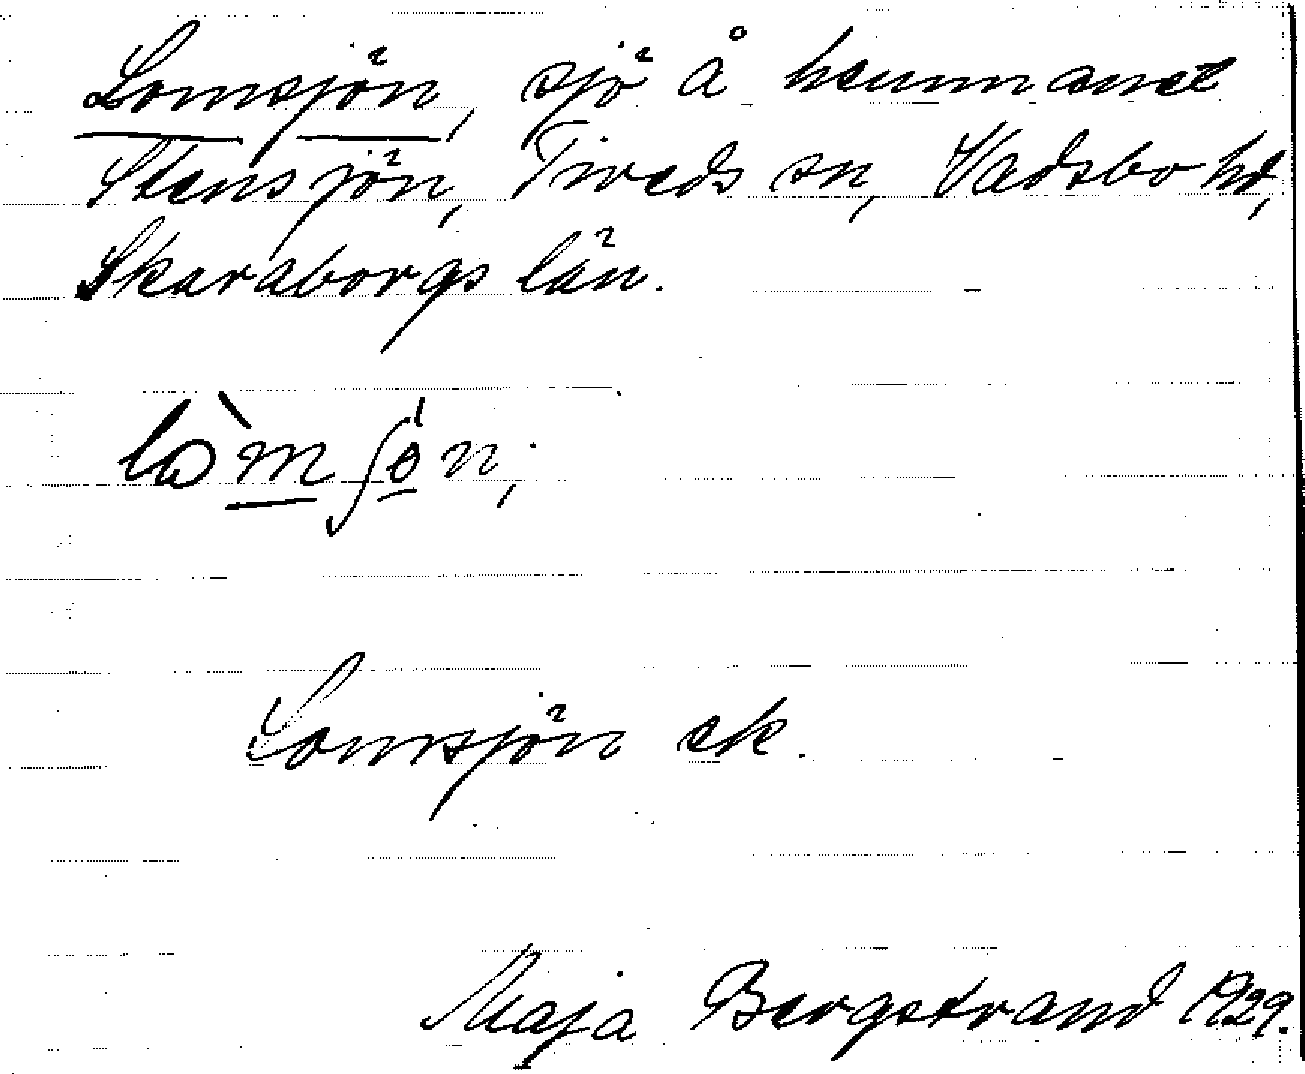 Lomsjön, sjö å hemmanet
Stensjön, Tiveds sn, Vadsbo hd,
Skaraborgs län.
lò̀mʃö́n;
Lomsjön ek.
Maja Bergstrand 1929.